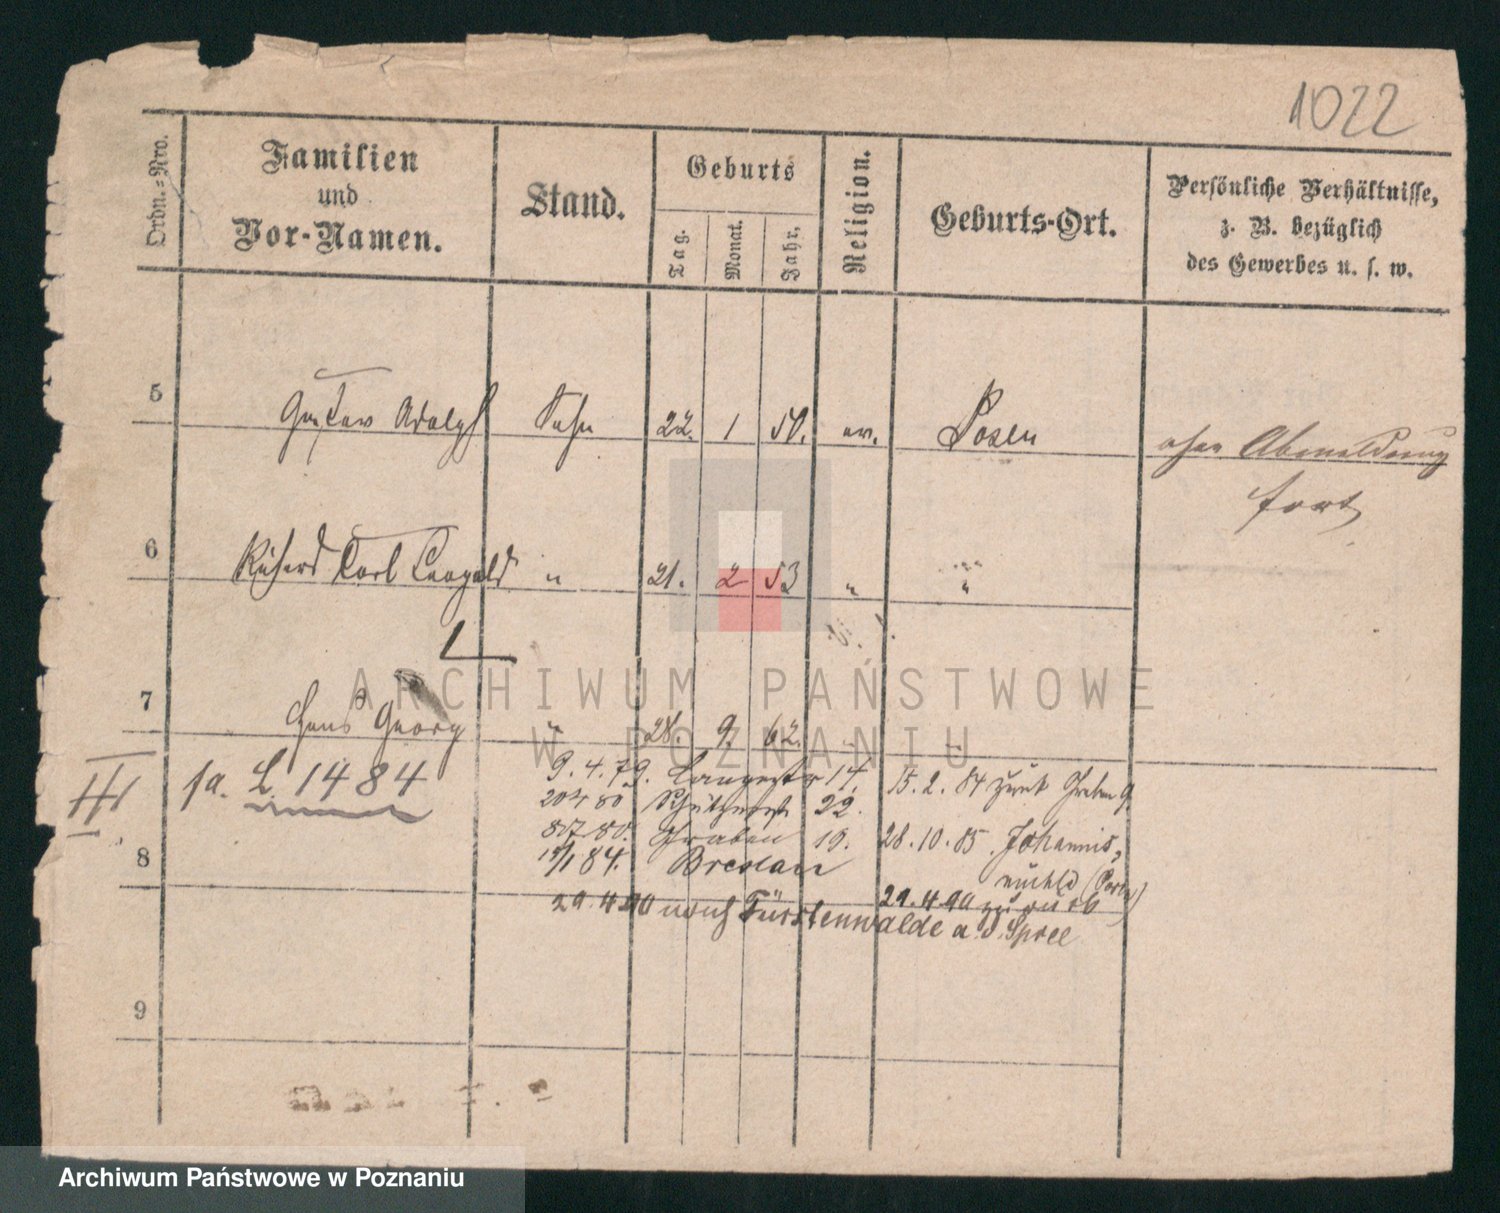 1022
Ordn.=Nro.
Familien
und
Vor-Namen.
Stand.
Geburts
Tag.
Monat.
Jahr.
Religion.
Geburts-Ort.
Persönliche Verhältnisse,
z. B. bezüglich
des Gewerbes u. s. w.
5 Gustav Adolph Sohn 22. 1 50. ev. Posen ohne Abmeldung
fort
6 Richard Carl Leopold " 21. 2 53 " "
7 Hans Georg " 28. 9. 62.
1a. L. 1484
9. 4. 79. 14. 15. 2. 84 zurück Graben 9
80 22.
80. Graben 19. 28. 10. 85. Johannis,
8 84. Breslau
29. 4. 90 nach Fürstenwalde a. d. Spree
29. 4. 90 zurück
9
ARCHIWUM PAŃSTWOWE
W POZNANIU
Archiwum Państwowe w Poznaniu